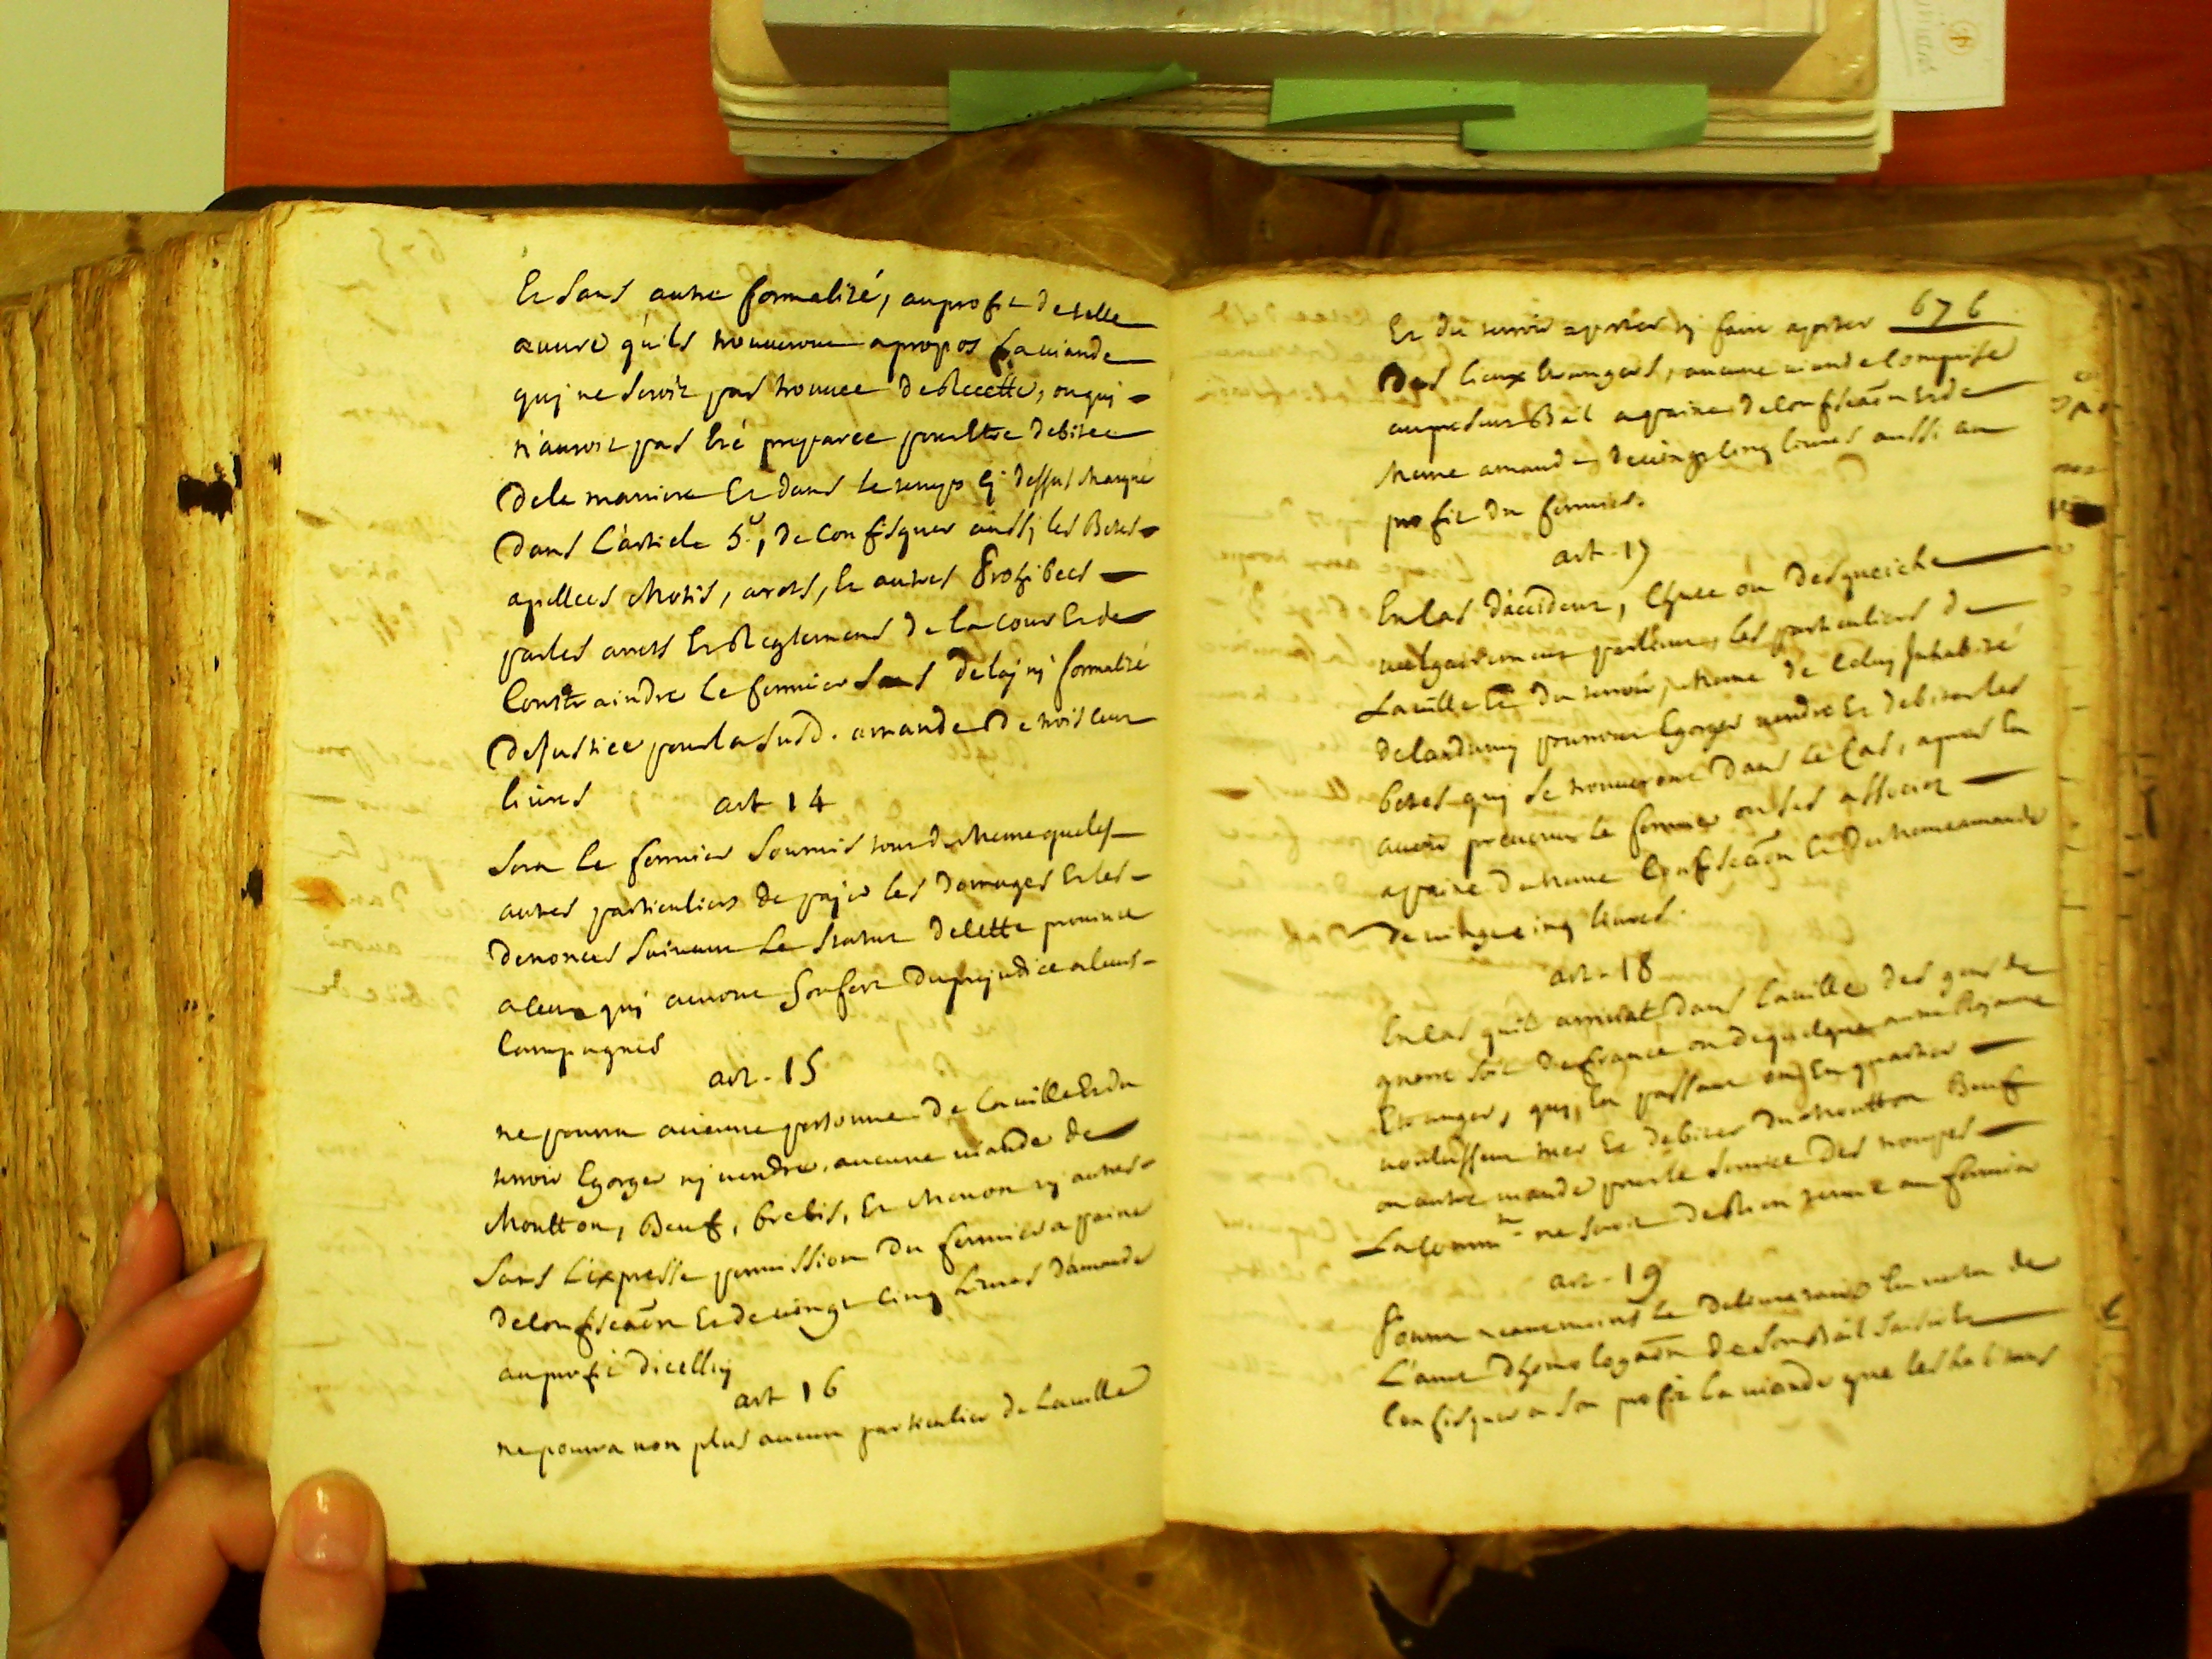 Et sans autre formalité, au profit de telle
œuvre qu'ils trouveront a propos La viande
quj ne seroit pas trouvée de Recette, ou quj
n'auroit pas été preparée pour être debitée
de la maniere Et dans le temps cj dessus marqué
dans L'article 5.e, de Confisquer aussj les Betes
apellees Motis, arets, Et autres Prohibees
par les arrets Et Reglemens de la Cour Et de
Contraindre le fermier sans delaj nj formalité
de justice pour la susd. amande de trois cent
livres
art 14
Sera le fermier soumis tout de Meme que les
autres particuliers de pajer les domages Et les
denonces suivant Le statut de cette province
a ceux quj auront soufert du prejudice a leurs
Campagnes
art. 15
ne pourra aucune personne de La ville Et du
terroir Egorger nj vendre aucune viande de
Moutton, Bœuf, brebis, Et Menon nj autres
sans L'expresse permission du fermier a paine
de confiscaõn Et de vingt cinq Livres d'amande
au profit d'icelluj
art 16
ne pourra non plus aucun particulier de La ville
676
Et du terroir aporter nj faire aporter
Des lieux Etrangers, aucune viande Comprise
au present Bail a paine de confiscaõn Et de
Meme amande de vingt cinq livres aussi au
profit du fermier.
art. 17
En cas d'accident, Chute ou
vulgairement parlant, les particuliers de
La ville Et du terroir, Meme de Celuj Inhabité
pourront Egorger vendre Et debiter les
betes quj se trouveront dans le Cas, apres en
avoir prevenu le fermier ou ses associez
a paine de Meme Confiscaõn Et de Meme amande
de vingt cinq livres.
art. 18
En cas quil arrivat dans La ville des gens de
guerre soit de france ou de quelque autre Royaume
Etranger, quj, En passant ou En quartier
voulussent tuer Et debiter du Moutton Bœuf
ou autre viande pour le service des troupes
La Comm.te ne seroit de Rien tenue au fermier
art. 19
Pourra neanmoins le En vertu de
L'arret d'homologaõn de son Bail
Confisquer a son profit la viande que les